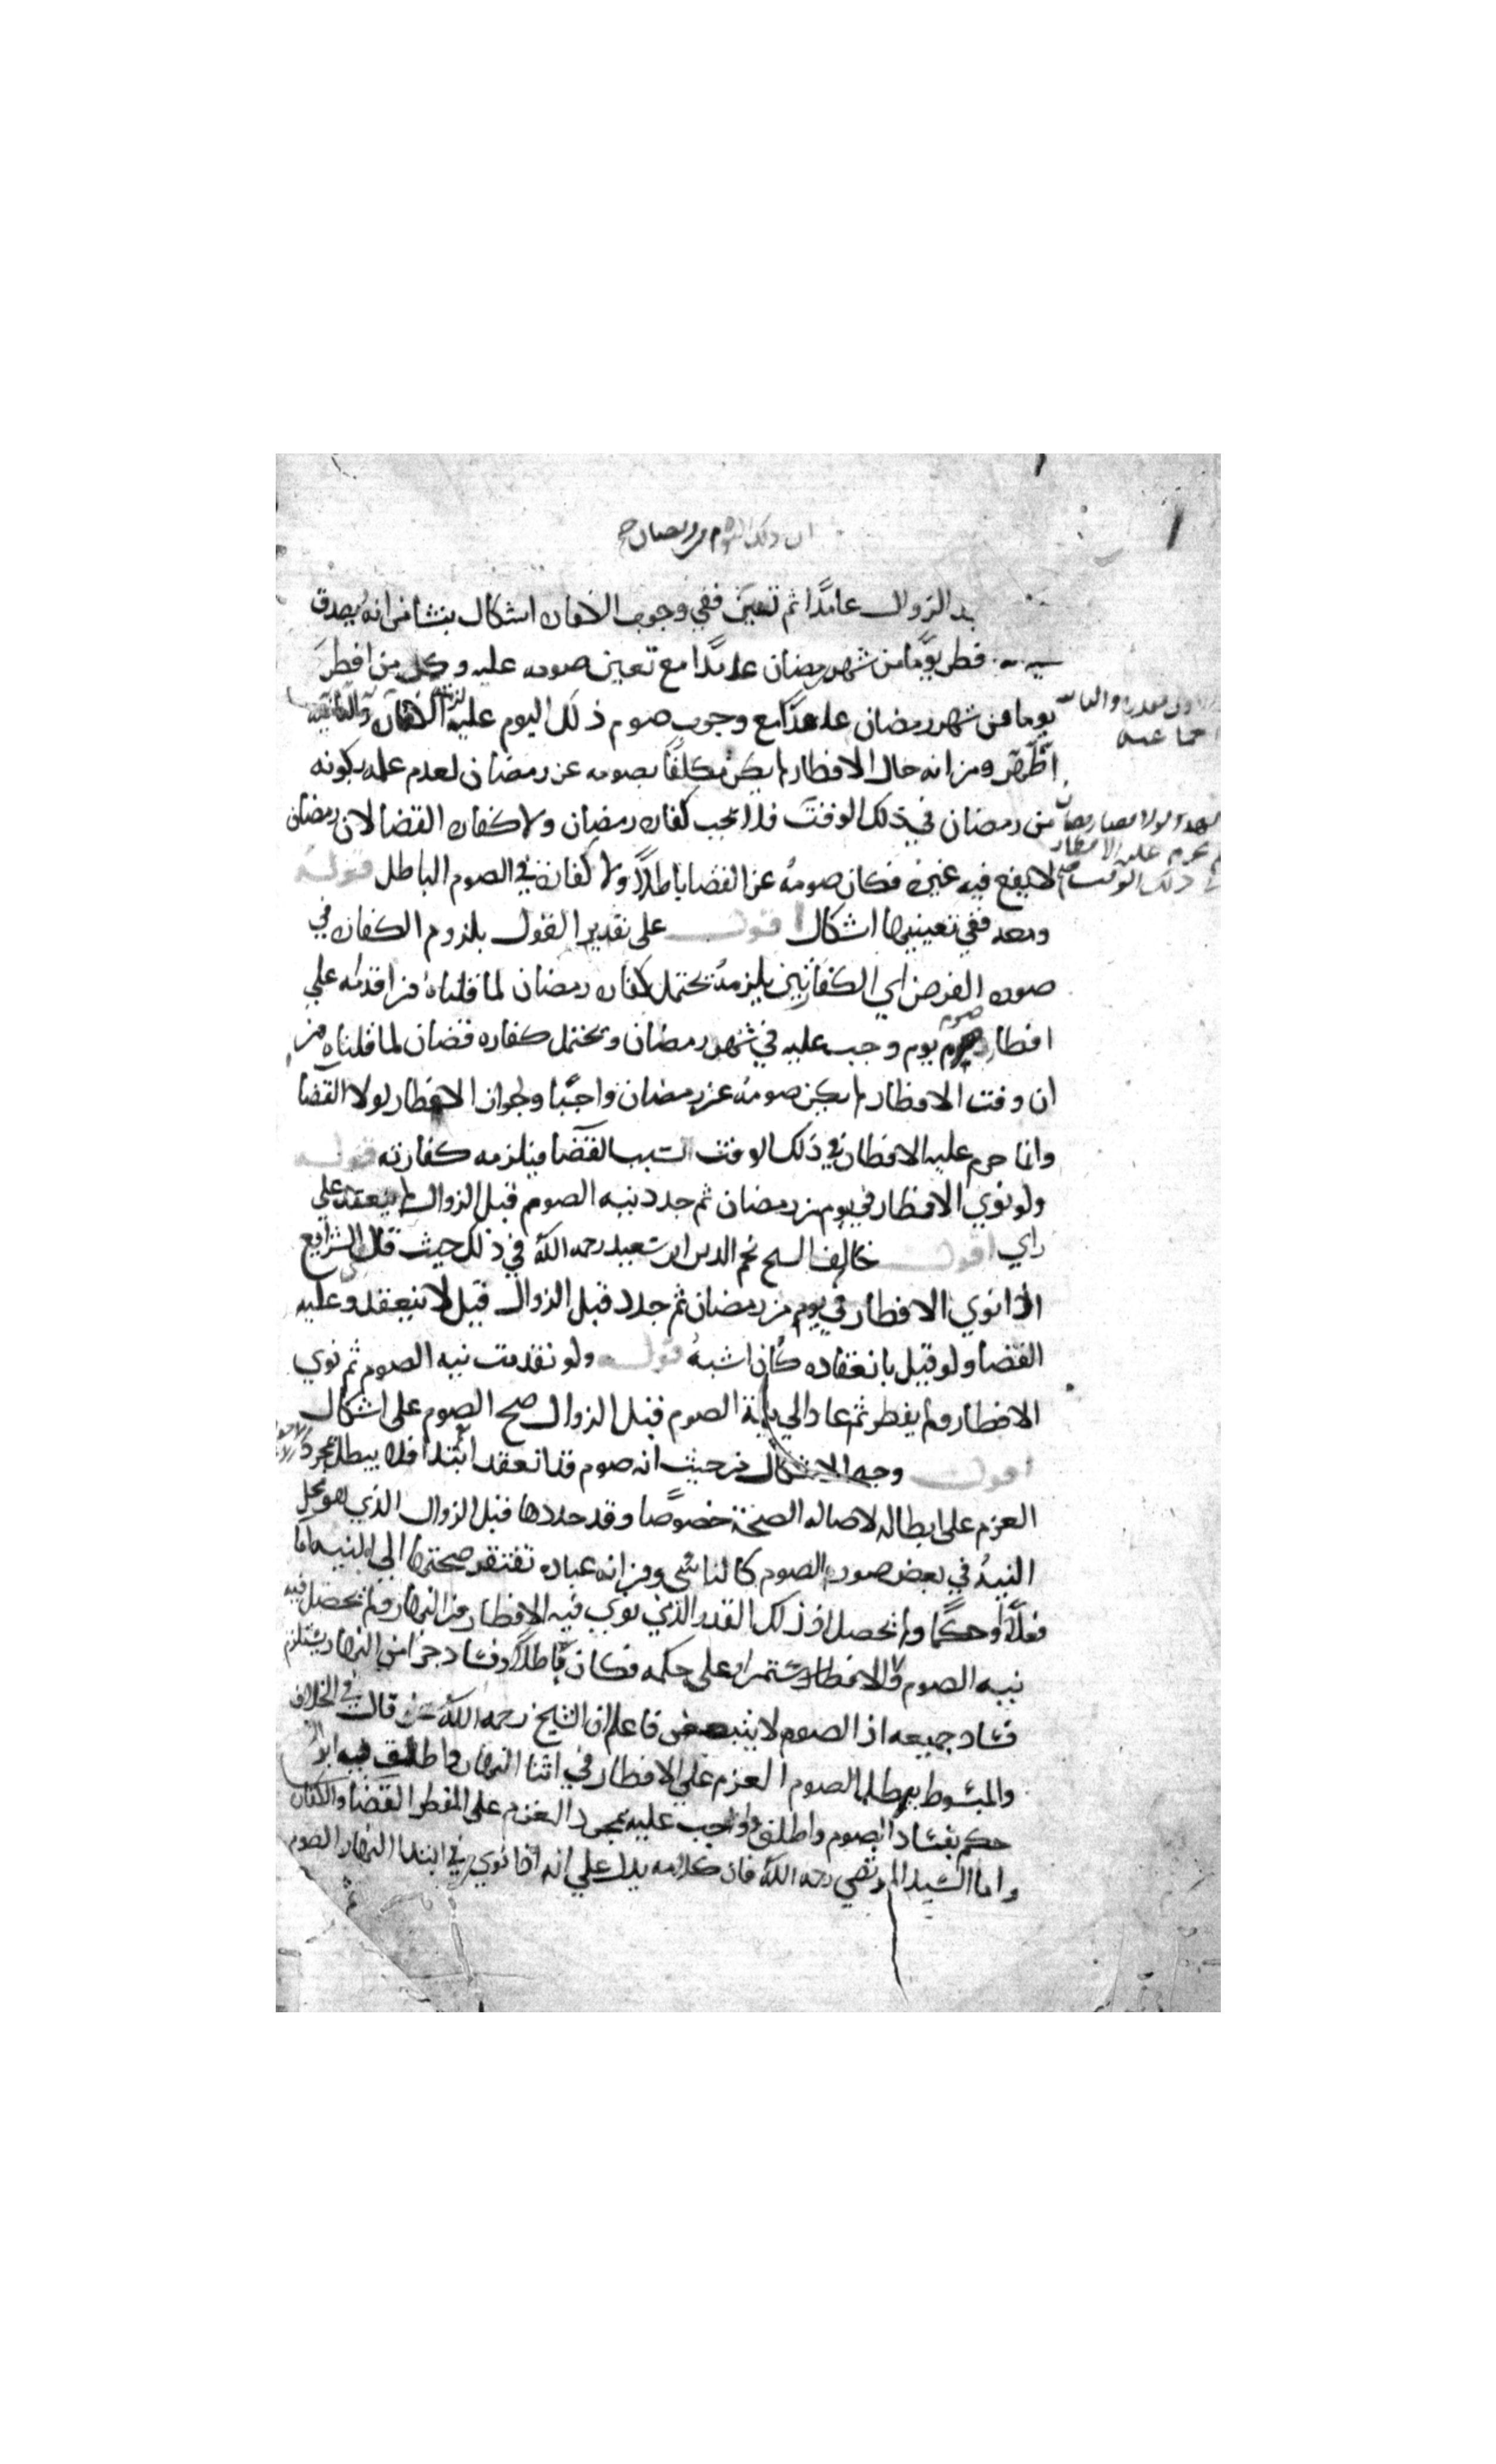 ان ذلك اليوم من رمضان
بعد الزوال عامدًا ثم تعين ففي وجوب الكفاره اشكال ينشا من انه يصدق
فطر يومًا من شهر رمضان عامدًا مع تعين صومه عليه وكل من افطر
يوما من شهر رمضان عامدًا مع وجوب صوم ذلك اليوم عليه لزمته الكفاره والثانيه
ظاهره ومن انه حال الافطار لم يكن مكلفًا بصومه عن رمضان لعدم علمه بكونه
من رمضان في ذلك الوقت فلا تجب كفاره رمضان ولا كفاره القضا لان رمضان
لا يقع فيه غيره فكان صومه عن القضا باطلاً ولا كفاره في الصوم الباطل قوله
ومعه ففي تعيينها اشكال اقول على تقدير القول بلزوم الكفاره في
صوره الفرض اي الكفارتين يلزمه يحتمل كفاره رمضان لما قلناه من اقدامه علي
افطار صوم يوم وجب عليه في شهر رمضان ويحتمل كفاره قضان لما قلناه من
ان وقت الافطار لم يكن صومه عن رمضان واجبًا ولجواز الافطار لولا القضا
وانما حرم عليه الافطار في ذلك الوقت لسبب القضا فيلزمه كفارته قوله
ولو نوي الافطار في يوم من رمضان ثم جدد نيه الصوم قبل الزوال لم ينعقد علي
راي اقول خالف الشيخ نجم الدين ابن سعيد رحمه الله في ذلك حيث قال في الشرايع
اذا نوي الافطار في يوم من رمضان ثم جدد قبل الزوال قيل لا ينعقد وعليه
القضا ولو قيل بانعقاده كان اشبه قوله ولو تقدمت نيه الصوم ثم نوي
الافطار ولم يفطر ثم عاد الي نية الصوم قبل الزوال صح الصوم على اشكال
اقول وجه الاشكال من حيث انه صوم قد انعقد ابتدا فلا يبطل بمجرد
العزم على ابطاله لاصاله الصحة خصوصًا وقد جددها قبل الزوال الذي هو محل
النيه في بعض صور الصوم كالناسي ومن انه عباده تفتقر صحتها الي النيه اما
فعلاً او حكمًا ولم تحصل في ذلك القدر الذي نوي فيه الافطار من النهار ولم تحصل فيه
نيه الصوم ولا الاستمرار على حكمه فكان باطلاً وفساد جز من النهار يستلزم
فساد جميعه اذ الصوم لا يتبعض فاعلم ان الشيخ رحمه الله قال في الخلاف
والمبسوط يبطل الصوم العزم علي الافطار في اثنا النهار واطلق
حكم بفساد الصوم واطلق واوجب عليه بمجرد العزم على المفطر القضا والكفاره
واما السيد المرتضي رحمه الله فان كلامه يدل علي انه اذا نوي في ابتدا النهار الصوم